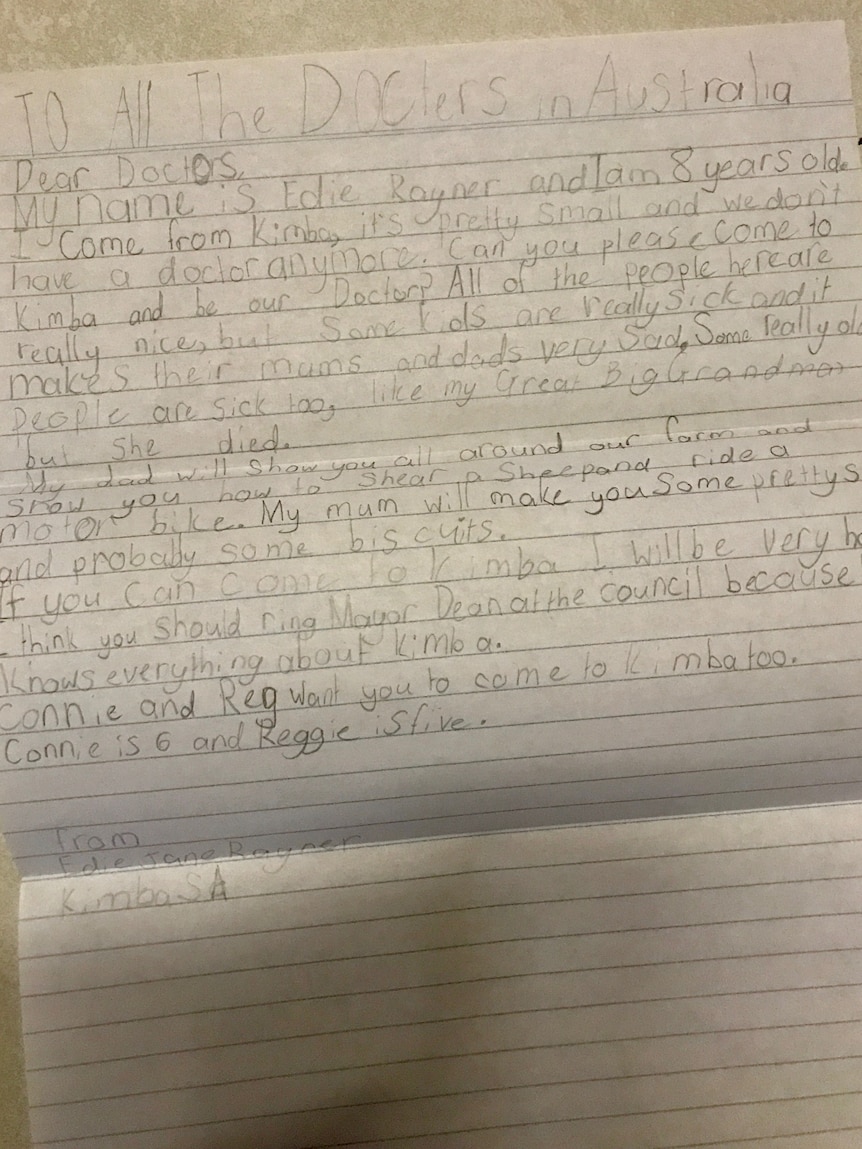 TO All The DOCters in Australia
Dear Doctors,
My name is Edie Rayner and I am 8 years old.
I Come from Kimba, it's pretty small and we don't
have a doctor anymore. Can you please come to
Kimba and be our Doctor? All of the people here are
really nice, but Some kids are really sick and it
makes their mums and dads very Sad. Some really old
people are sick too, like my Great Big Grandma
but She died.
My dad will show you all around our farm and
show you how to Shear a Sheep and ride a
motor bike. My mum will make you Some pretty s
and probably some biscuits.
If you Can Come to Kimba I will be very h
I think you should ring Mayor Dean at the council because
Knows everything about Kimba.
Connie and Reg want you to come to Kimba too.
Connie is 6 and Reggie is five.
From
Edie Jane Rayner
Kimba SA